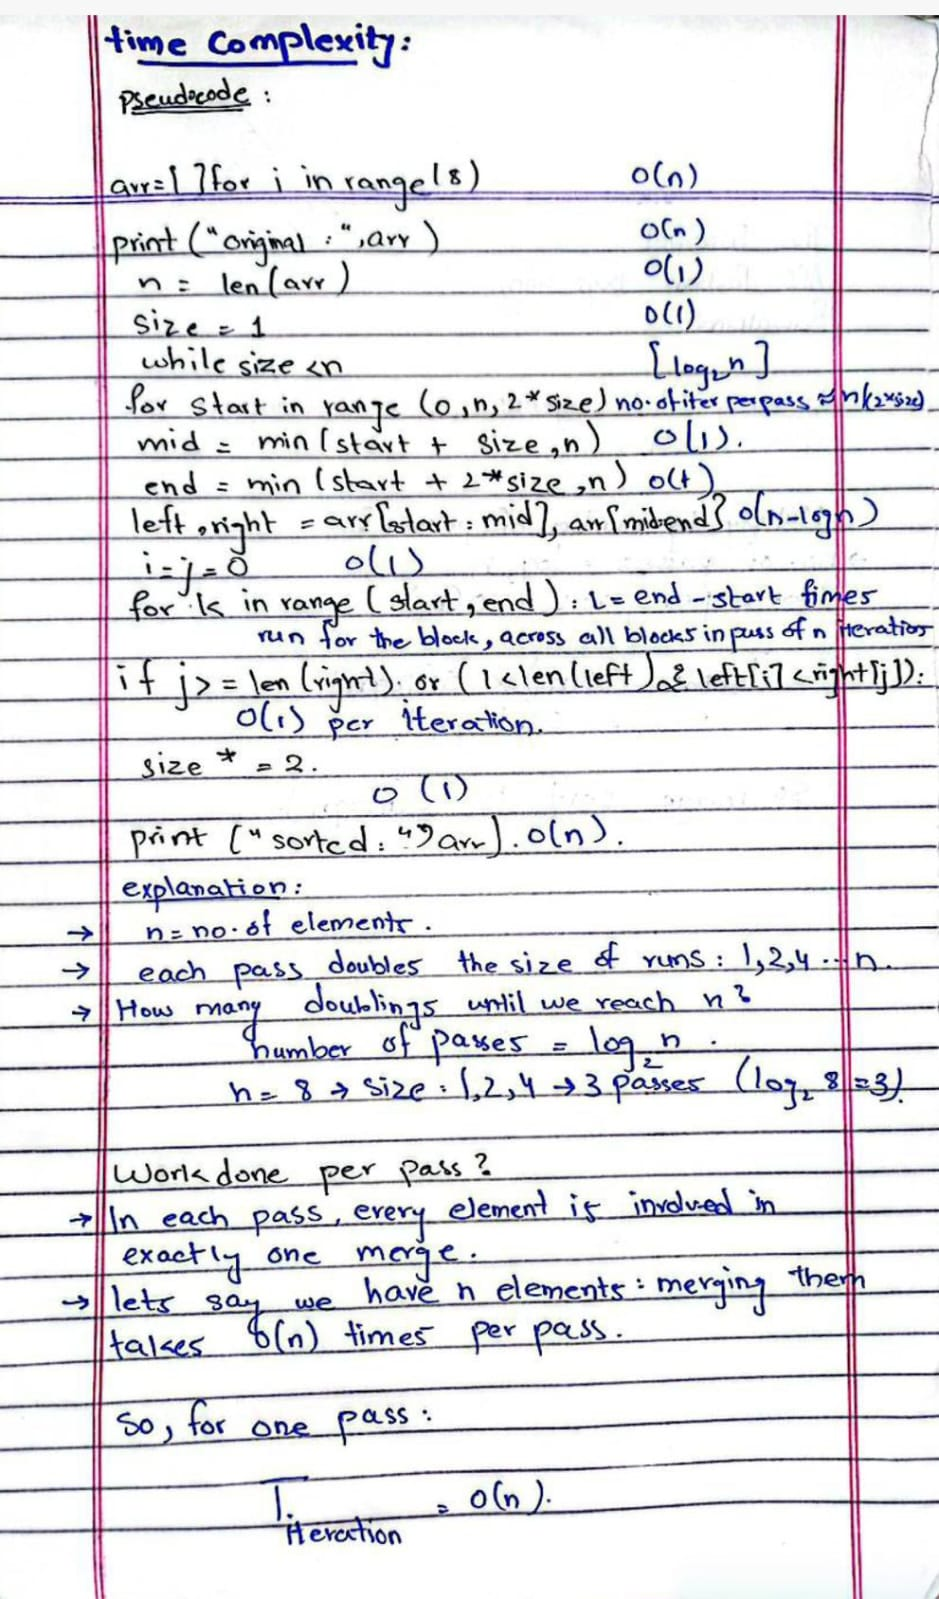 time Complexity:
Pseudocode :
arr=[ ]for i in range(8) O(n)
print ("original :",arr ) O(n)
n = len(arr) O(1)
size = 1 O(1)
while size <n [log₂n]
for start in range (0,n, 2*size) no. of iter per pass ≈ n/(2*size)
mid = min (start + size,n) O(1).
end = min (start + 2*size ,n) O(1)
left ,right = arr[start : mid], arr[mid:end] O(n-logn)
i=j=0 O(1)
for k in range (start, end) : L= end - start times
run for the block, across all blocks in pass of n iteration
if j>= len (right). or (i<len(left) & left[i] <right[j]):
O(1) per iteration.
size * = 2.
O (1)
print ("sorted : ", arr). O(n).
explanation:
→ n= no. of elements .
→ each pass doubles the size of runs : 1,2,4 ... n.
→ How many doublings until we reach n?
number of passes = log₂n .
n= 8 → size : 1,2,4 → 3 passes (log₂ 8 =3).
Work done per pass?
→ In each pass, every element is involved in
exactly one merge.
→ lets say we have n elements : merging them
takes O(n) times per pass.
So, for one pass :
T iteration = O(n).